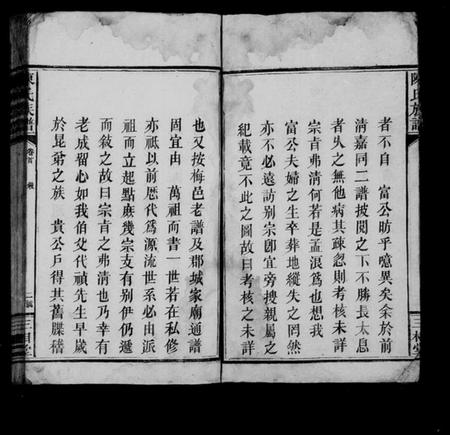 陳氏族譜
者不自 富公昉乎噫異矣余於前
清嘉同二譜披閱之下不勝長太息
者久之無他病其疎忽則考核未詳
宗肯弗清何若是孟浪為也想我
富公夫婦之生卒葬地縱失之罔然
亦不必遠訪別宗卽宜旁搜親屬之
紀載竟不此之圖故曰考核之未詳
也又按梅邑老譜及郡城家廟通譜
固宜由 萬祖而書一世若在私修
亦祗以前歷代為源流世系必由派
祖而立起點庶幾宗支有別伊仍遞
而敘之故曰宗肯之弗清也乃幸有
老成留心如我伯父代禎先生早歲
於昆弟之族 貴公戶得其舊牒稽
陳氏族譜
卷首